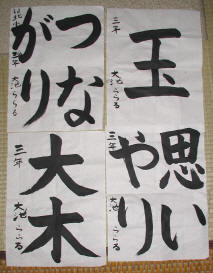 玉
三年
大池
つな
がり
三年
大池
思い
やり
三年
大池
大木
三年
大池